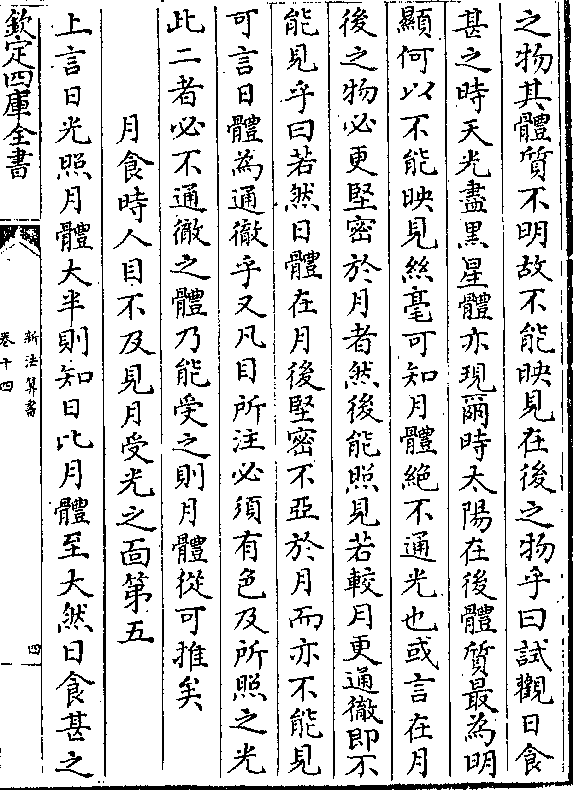 之物其體質不明故不能映見在後之物乎曰試觀日食
甚之時天光盡黑星體亦現爾時太陽在後體質最為明
顯何以不能映見絲毫可知月體絶不通光也或言在月
後之物必更堅密於月者然後能照見若較月更通徹即不
能見乎曰若然日體在月後堅密不亞於月而亦不能見
可言日體為通徹乎又凡目所注必須有色及所照之光
此二者必不通徹之體乃能受之則月體從可推矣
月食時人目不及見月受光之面第五
上言日光照月體大半則知日比月體至大然日食甚之
欽定四庫全書
新法算書
卷十四
四